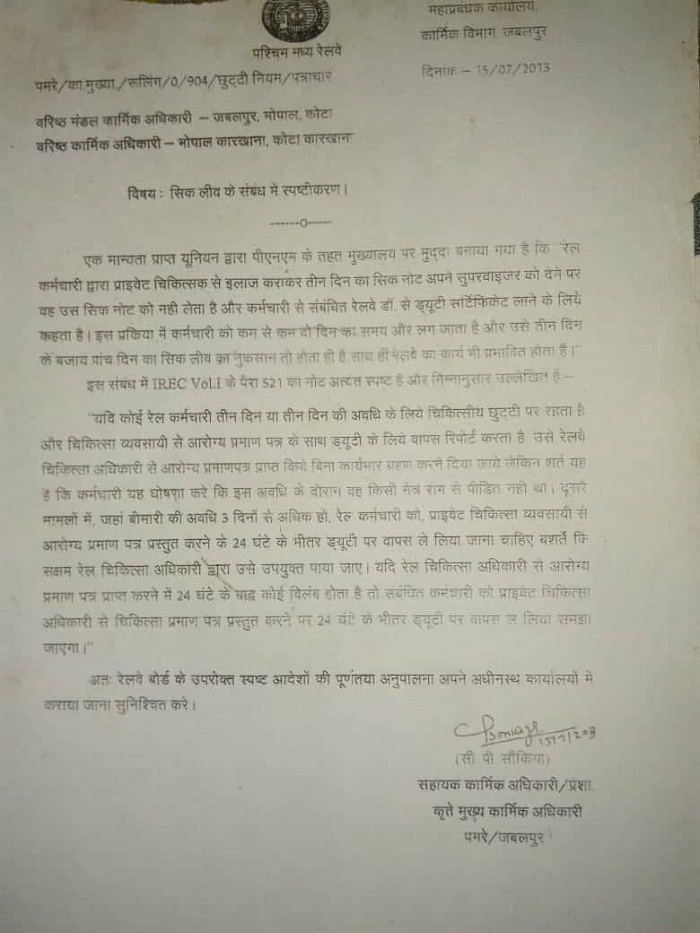 महाप्रबंधक कार्यालय,
कार्मिक विभाग जबलपुर
पश्चिम मध्य रेलवे
पमरे/का.मुख्या./रूलिंग/0/904/छुट्टी नियम/पत्राचार
दिनांक – 15/07/2013
वरिष्ठ मंडल कार्मिक अधिकारी – जबलपुर, भोपाल, कोटा
वरिष्ठ कार्मिक अधिकारी – भोपाल कारखाना, कोटा कारखाना
विषय : सिक लीव के संबंध में स्पष्टीकरण।
------0-----
एक मान्यता प्राप्त यूनियन द्वारा पीएनएम के तहत मुख्यालय पर मुद्दा बनाया गया है कि "रेल
कर्मचारी द्वारा प्राइवेट चिकित्सक से इलाज कराकर तीन दिन का सिक नोट अपने सुपरवाइजर को देने पर
वह उस सिक नोट को नही लेता है और कर्मचारी से संबंधित रेलवे डॉ. से ड्यूटी सर्टिफिकेट लाने के लिये
कहता है। इस प्रकिया में कर्मचारी को कम से कम दो दिन का समय और लग जाता है और उसे तीन दिन
के बजाय पांच दिन का सिक लीव का नुकसान तो होता ही है साथ ही रेलवे का कार्य भी प्रभावित होता है।"
इस संबंध में IREC Vol.I के पैरा 521 का नोट अत्यंत स्पष्ट है और निम्नानुसार उल्लेखित है:–
"यदि कोई रेल कर्मचारी तीन दिन या तीन दिन की अवधि के लिये चिकित्सीय छुट्टी पर रहता है
और चिकित्सा व्यवसायी से आरोग्य प्रमाण पत्र के साथ ड्यूटी के लिये वापस रिपोर्ट करता है उसे रेलवे
चिकित्सा अधिकारी से आरोग्य प्रमाणपत्र प्राप्त किये बिना कार्यभार ग्रहण करने दिया जाये लेकिन शर्त यह
है कि कर्मचारी यह घोषणा करे कि इस अवधि के दौरान वह किसी नेत्र रोग से पीडित नही था। दूसरे
मामलों में, जहां बीमारी की अवधि 3 दिनों से अधिक हो, रेल कर्मचारी को, प्राइवेट चिकित्सा व्यवसायी से
आरोग्य प्रमाण पत्र प्रस्तुत करने के 24 घंटे के भीतर ड्यूटी पर वापस ले लिया जाना चाहिए बशर्ते कि
सक्षम रेल चिकित्सा अधिकारी द्वारा उसे उपयुक्त पाया जाए। यदि रेल चिकित्सा अधिकारी से आरोग्य
प्रमाण पत्र प्राप्त करने में 24 घंटे के बाद कोई विलंब होता है तो संबंधित कर्मचारी को प्राइवेट चिकित्सा
अधिकारी से चिकित्सा प्रमाण पत्र प्रस्तुत करने पर 24 घंटे के भीतर ड्यूटी पर वापस ले लिया समझा
जाएगा।"
अतः रेलवे बोर्ड के उपरोक्त स्पष्ट आदेशों की पूर्णतया अनुपालना अपने अधीनस्थ कार्यालयों में
कराया जाना सुनिश्चित करे।
(सी पी सौंकिया)
सहायक कार्मिक अधिकारी/प्रशा.
कृते मुख्य कार्मिक अधिकारी
पमरे/जबलपुर